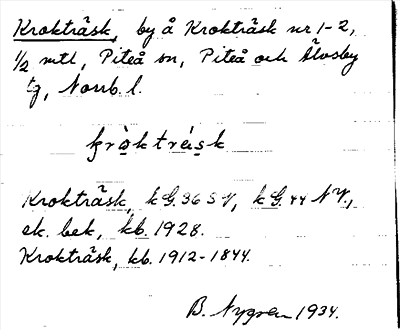 Krokträsk, by å Krokträsk nr 1-2,
1/2 mtl, Piteå sn, Piteå och Älvsby
tg, Norrb. l.
kròkträ́sk
Krokträsk, k G. 36 S V, k G. 44 N V.,
ek. bek, kb. 1928.
Krokträsk, kb. 1912-1844.
B. Nygren 1934.